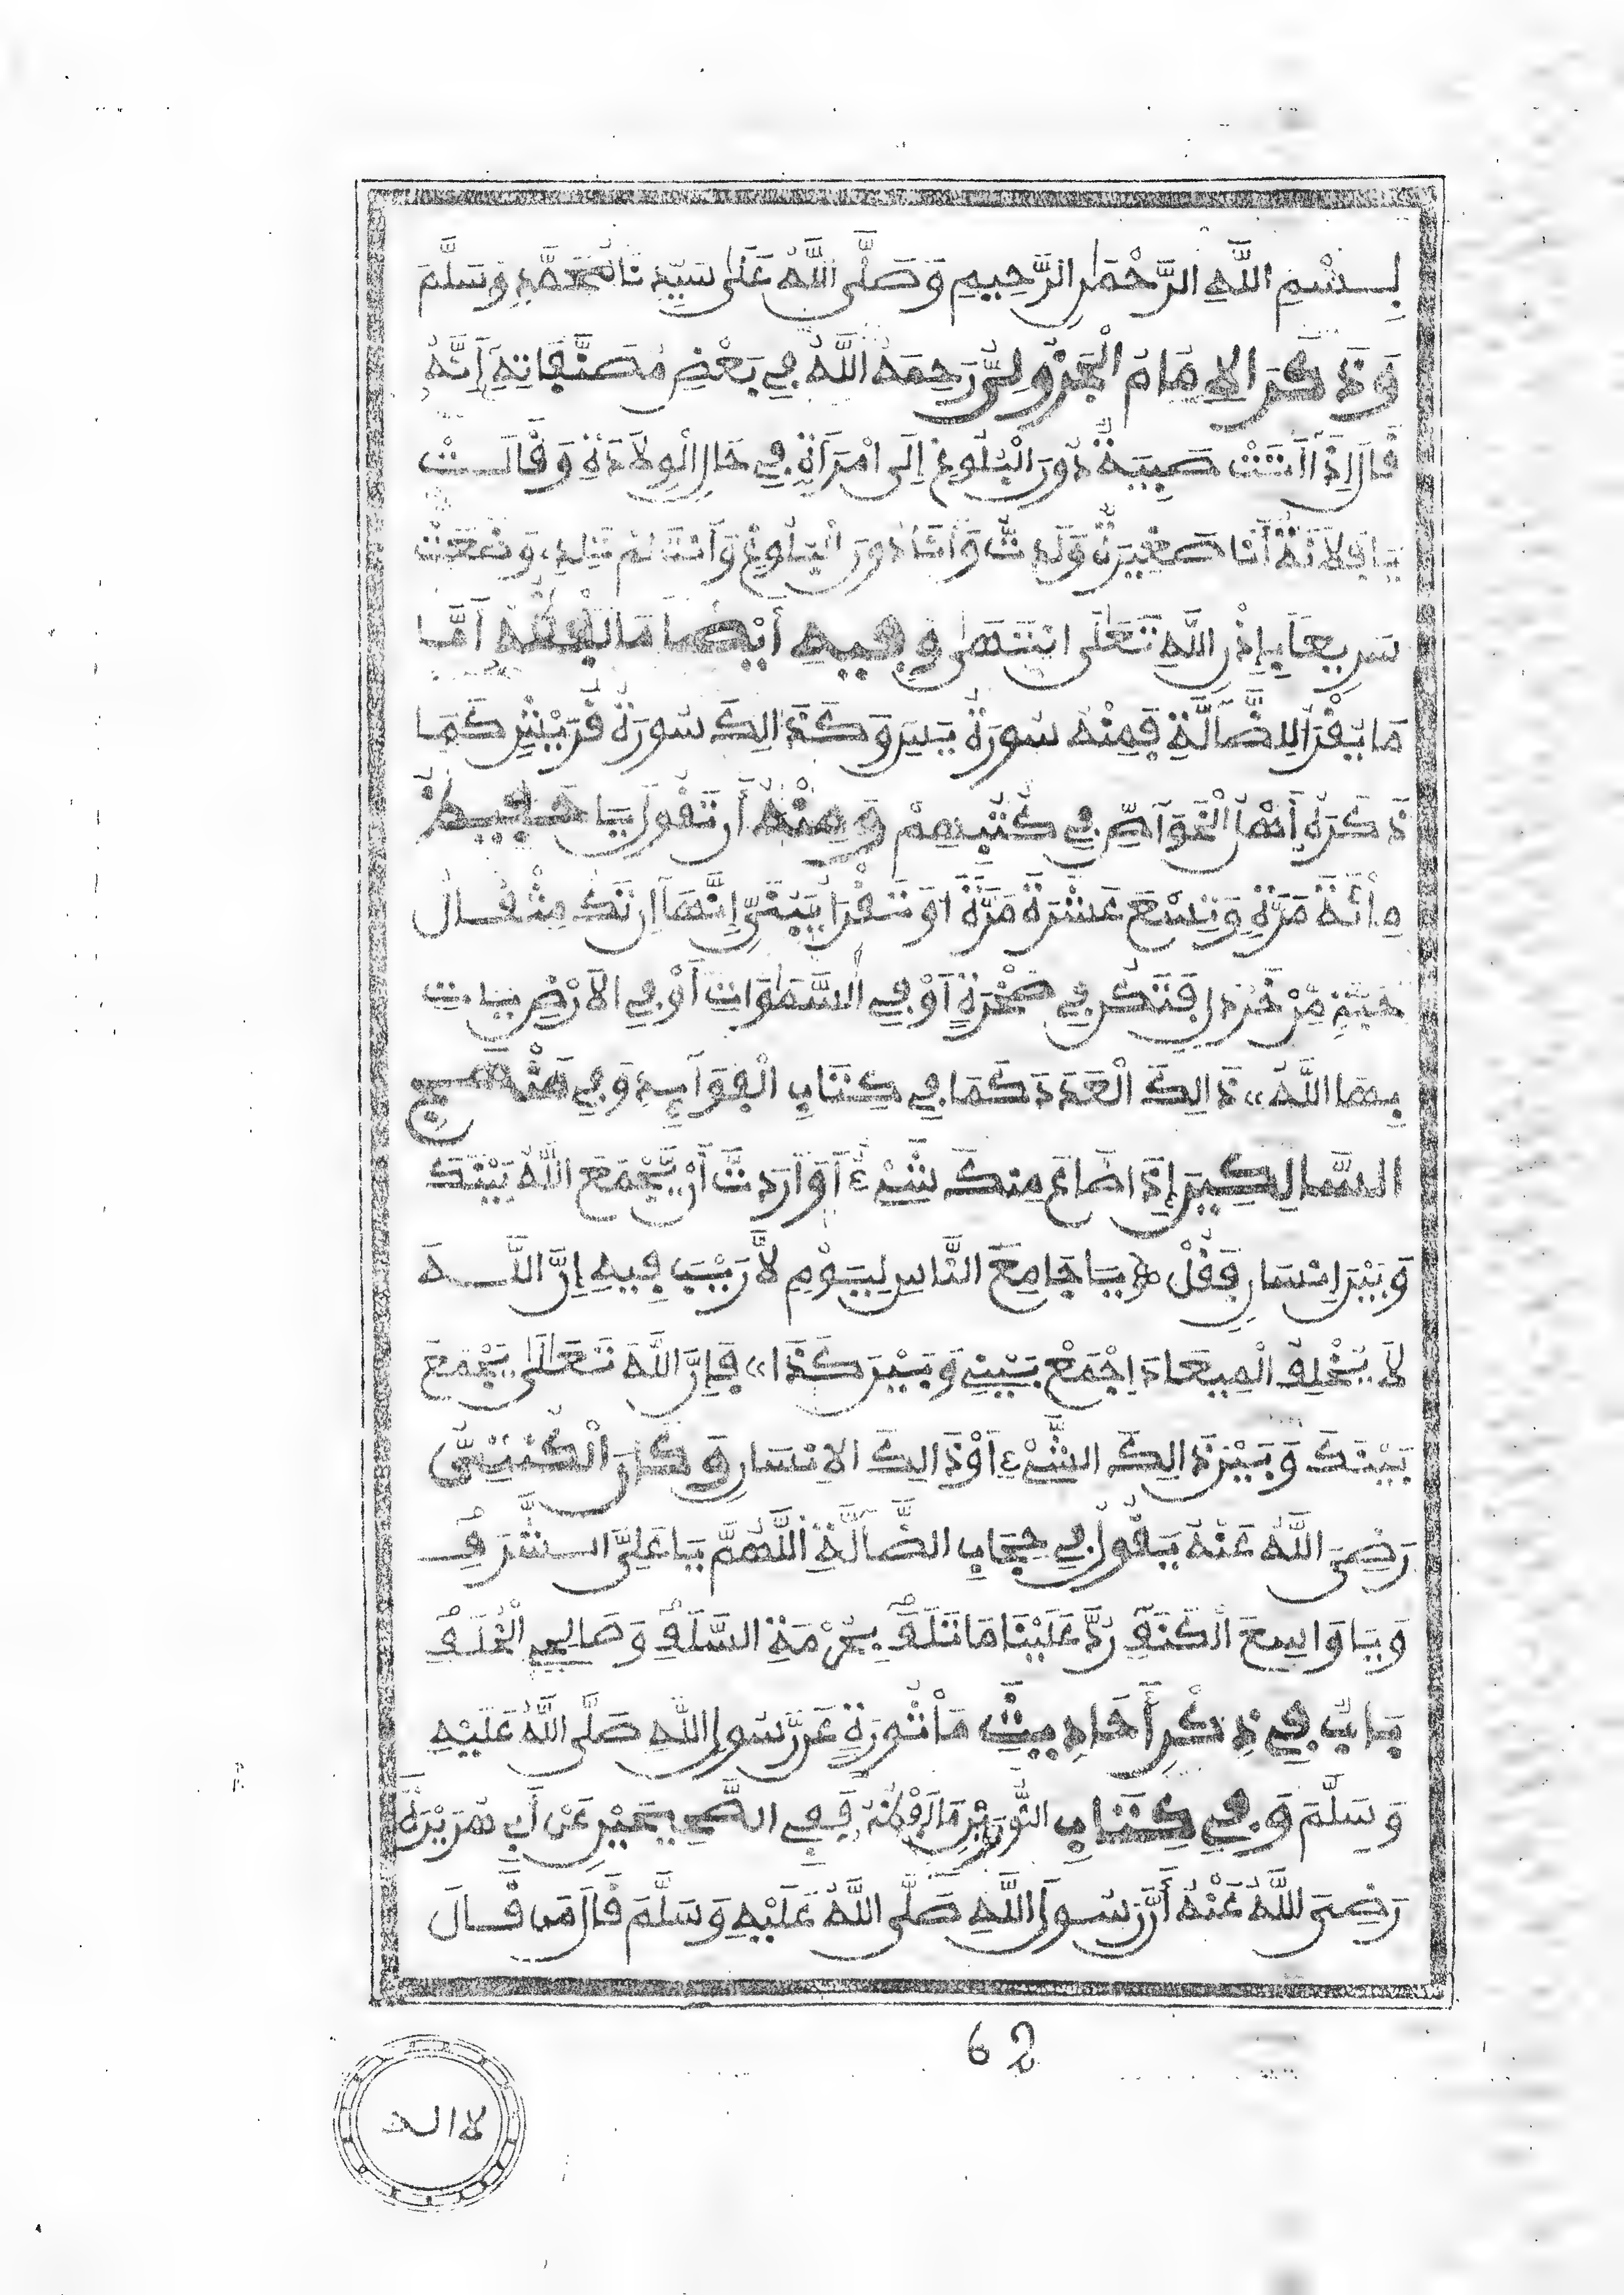 بِسْمِ اللَّهِ الرَّحْمَٰنِ الرَّحِيمِ وَصَلَّى اللَّهُ عَلَىٰ سَيِّدِنَا مُحَمَّدٍ وَسَلَّمَ
وَذَكَرَ الإِمَامُ الْجَزُولِيُّ رَحِمَهُ اللَّهُ فِي بَعْضِ مُصَنَّفَاتِهِ أَنَّهُ
قَالَ إِذَا أَتَتْ صَبِيَةٌ دُونَ الْبُلُوغِ إِلَى امْرَأَةٍ فِي حَالِ الْوِلَادَةِ وَقَالَتْ
يَا فُلَانَةُ أَنَا صَغِيرَةٌ وَلَدتُّ وَأَنَا دُونَ الْبُلُوغِ وَأَنتَ لَمْ تَلِدِ، وَضَعَتْ
سَرِيعًا بِإِذْنِ اللَّهِ تَعَلَى انْتَهَىٰ وَفِيهِ أَيْضًا مَا أَمَّا
مَا يُقْرَأُ لِلضَّآلَّةِ فَمِنْهُ سُورَةُ يَسِ وَكَذَالِكَ سُورَةُ قُرَيْشٍ كَمَا
ذَكَرَهُ أَهْلُ الْخَوَآصِّ فِي كُتُبِهِمْ وَمِنْهُ أَن تَقُولَ يَا حَفِيظُ
مِائَةَ مَرَّةٍ وَتِسْعَ عَشْرَةَ مَرَّةً أَوْ تَقْرَأَ يَبُنَيِّ إِنَّهَا إِن تَكُ مِثْقَالُ
حَبَّةٍ مِّنْ خَرْدَلٍ فَتَكُن فِي صَخْرَةٍ أَوْ فِي السَّمَٰوَاتِ أَوْ فِي الأَرْضِ يَاتِ
بِهَا اللَّهُ» ذَالِكَ الْعَدَدَ كَمَا فِي كِتَابِ الْفَوَآئِدِ وَفِي مَنْهَجِ
السَّالِكِينَ إِذَا ضَاعَ مِنكَ شَيْءٌ أَوَ ارَدتَّ أَنْ يَّجْمَعَ اللَّهُ بَيْنَكَ
وَبَيْنَ إِنْسَانٍ فَقُلْ «يَا جَامِعَ النَّاسِ لِيَوْمٍ لَّا رَيْبَ فِيهِ إِنَّ اللَّهَ
لَا يُخْلِفُ الْمِيعَادَ اِجْمَعْ بَيْنِي وَبَيْنَ كَذَا» فَإِنَّ اللَّهَ تَعَالَىٰ يَجْمَعُ
بَيْنَكَ وَبَيْنَ ذَالِكَ الشَّيْءِ أَوْ ذَالِكَ الإِنْسَانِ وَكَانَ الْكُنْتِيُّ
رَضِيَ اللَّهُ عَنْهُ يَقُولُ فِي حِجَابِ الضَّآلَّةِ اللَّهُمَّ يَا عَلِيَّ الشَّرَفِ
وَيَا وَاسِعَ الْكَنَفِ رُدَّ عَلَيْنَا مَا تَلَفَ بِحُرْمَةِ السَّلَفِ وَصَالِحِ الْخَلَفِ
بَابٌ فِي ذِكْرِ أَحَادِيثَ مَأْثُورَةٍ عَن رَّسُولِ اللَّهِ صَلَّى اللَّهُ عَلَيْهِ
وَسَلَّمَ وَفِي كِتَابِ فَفِي الصَّحِيحَيْنِ عَنْ أَبِي هُرَيْرَةَ
رَضِيَ اللَّهُ عَنْهُ أَنَّ رَسُولَ اللَّهِ صَلَّى اللَّهُ عَلَيْهِ وَسَلَّمَ قَالَ مَن قَالَ
62
لا اله